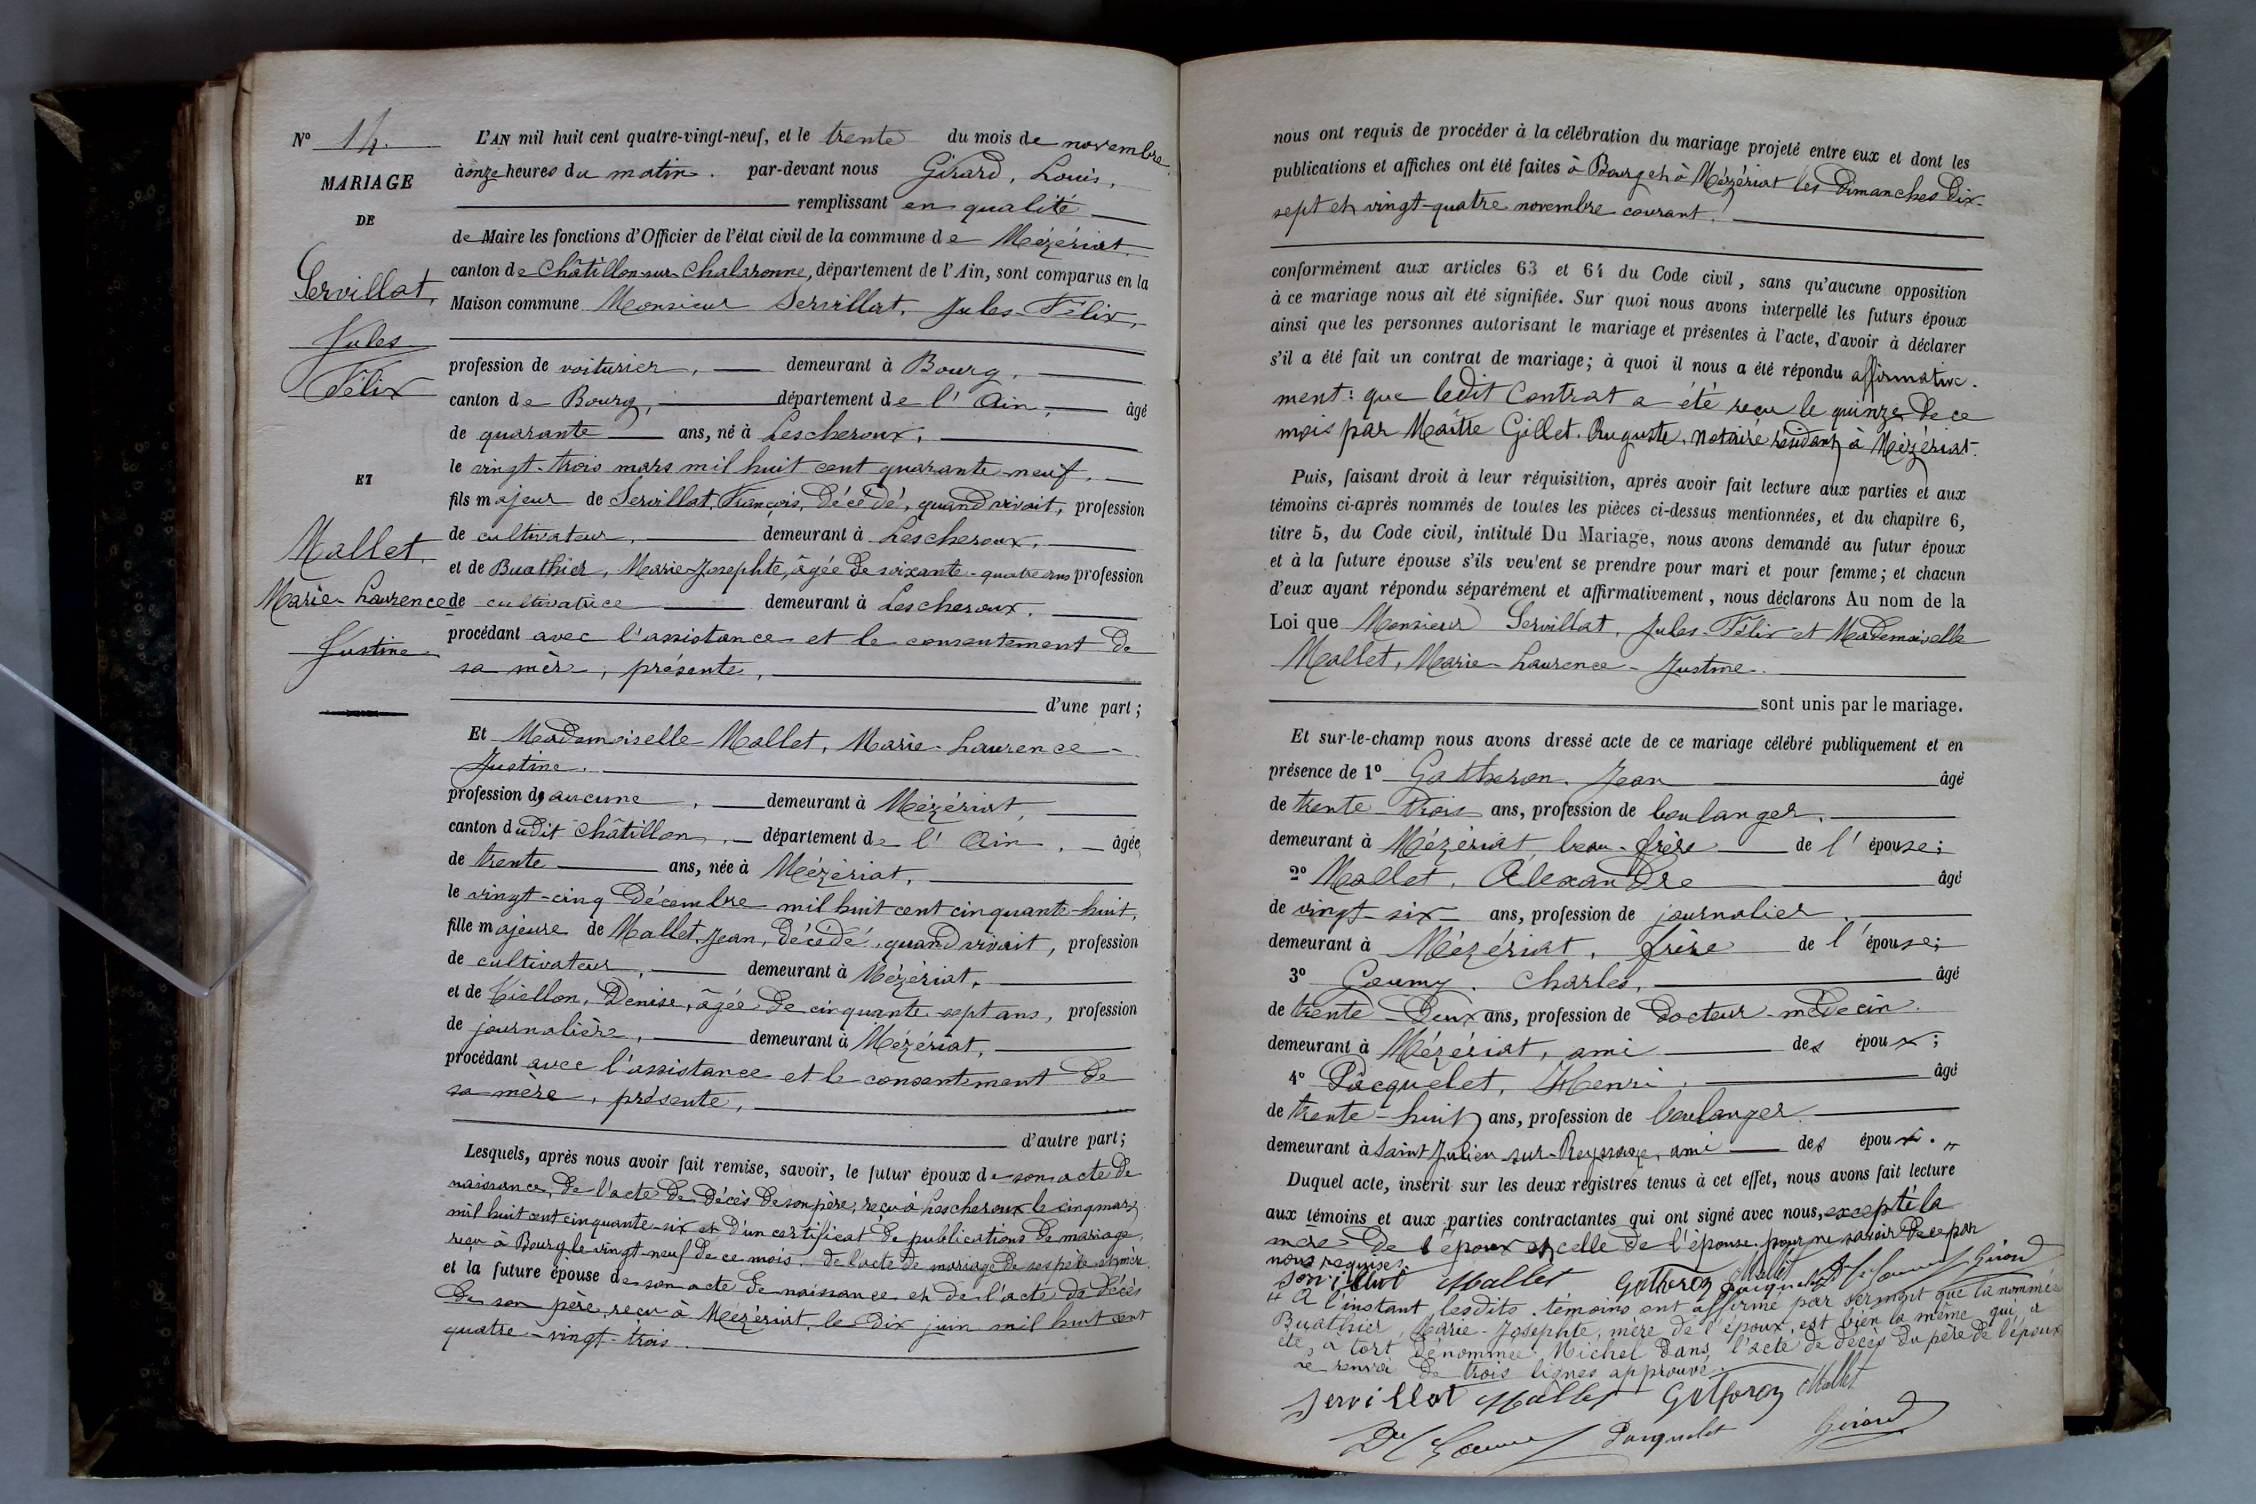 N° 14.
MARIAGE
DE
Servillat,
Jules
Félix
ET
Mallet,
Marie-Laurence
Justine
L'AN mil huit cent quatre-vingt-neuf, et le trente du mois de novembre
à onze heures du matin. par-devant nous Girard, Louis,
remplissant en qualité
de Maire les fonctions d'Officier de l'état civil de la commune de Mézériat,
canton de Châtillon-sur-Chalaronne, département de l'Ain, sont comparus en la
Maison commune Monsieur Servillat, Jules-Félix,
profession de voiturier, demeurant à Bourg,
canton de Bourg, département de l'Ain, âgé
de quarante ans, né à Lescheroux,
le vingt-trois mars mil huit cent quarante-neuf,
fils majeur de Servillat, François, décédé, quand vivait, profession
de cultivateur, demeurant à Lescheroux,
et de Buathier, Marie-Josephte, âgée de soixante-quatre ans profession
de cultivatrice demeurant à Lescheroux,
procédant avec l'assistance et le consentement de
sa mère, présente,
d'une part;
Et Mademoiselle Mallet, Marie-Laurence-
Justine,
profession de aucune, demeurant à Mézériat,
canton dudit Châtillon, département de l'Ain, âgée
de trente ans, née à Mézériat,
le vingt-cinq décembre mil huit cent cinquante-huit,
fille majeure de Mallet, Jean, décédé, quand vivait, profession
de cultivateur, demeurant à Mézériat,
et de Tiellon, Denise, âgée de cinquante-sept ans, profession
de journalière, demeurant à Mézériat,
procédant avec l'assistance et le consentement de
sa mère, présente,
d'autre part;
Lesquels, après nous avoir fait remise, savoir, le futur époux de son acte de
naissance, de l'acte de décès de son père, reçu à Lescheroux le cinq mars
mil huit cent cinquante-six et d'un certificat de publications de mariage,
reçu à Bourg le vingt-neuf de ce mois. de l'acte de mariage de ses père et mère.
et la future épouse de son acte de naissance et de l'acte de décès
de son père, reçu à Mézériat, le dix juin mil huit cent
quatre-vingt-trois.
nous ont requis de procéder à la célébration du mariage projeté entre eux et dont les
publications et affiches ont été faites à Bourg et à Mézériat les dimanches dix-
sept et vingt-quatre novembre courant.
conformément aux articles 63 et 64 du Code civil, sans qu'aucune opposition
à ce mariage nous ait été signifiée. Sur quoi nous avons interpellé les futurs époux
ainsi que les personnes autorisant le mariage et présentes à l'acte, d'avoir à déclarer
s'il a été fait un contrat de mariage; à quoi il nous a été répondu affirmative-
ment: que ledit Contrat a été reçu le quinze de ce
mois par Maître Gillet. Auguste, notaire résidant à Mézériat.
Puis, faisant droit à leur réquisition, après avoir fait lecture aux parties et aux
témoins ci-après nommés de toutes les pièces ci-dessus mentionnées, et du chapitre 6,
titre 5, du Code civil, intitulé Du Mariage, nous avons demandé au futur époux
et à la future épouse s'ils veulent se prendre pour mari et pour femme; et chacun
d'eux ayant répondu séparément et affirmativement, nous déclarons Au nom de la
Loi que Monsieur Servillat, Jules-Félix et Mademoiselle
Mallet, Marie-Laurence-Justine
sont unis par le mariage.
Et sur-le-champ nous avons dressé acte de ce mariage célébré publiquement et en
présence de 1° Gatheron, Jean âgé
de trente-trois ans, profession de boulanger,
demeurant à Mézériat, beau-frère de l'épouse;
2° Mallet, Alexandre âgé
de vingt-six ans, profession de journalier,
demeurant à Mézériat, frère de l'épouse;
3° Goumy, Charles, âgé
de trente-deux ans, profession de docteur-médecin
demeurant à Mézériat, ami des époux;
4° Pâcquelet, Henri, âgé
de trente-huit ans, profession de boulanger
demeurant à Saint Julien-sur-Reyssouze, ami des époux. "
Duquel acte, inscrit sur les deux registres tenus à cet effet, nous avons fait lecture
aux témoins et aux parties contractantes qui ont signé avec nous, excepté la
mère de l'époux et celle de l'épouse pour ne savoir de ce par
nous requises.
Servillat Mallet Gatheron Mallet Pacquelet Dr Goumy Girard
" A l'instant, lesdits témoins ont affirmé par serment que la nommée
Buathier, Marie-Josephte, mère de l'époux, est bien la même qui a
été à tort dénommée Michel dans l'acte de décès du père de l'époux
ce renvoi de trois lignes approuvé.
Servillat Mallet Gatheron Mallet
Dr Goumy Pacquelet Girard